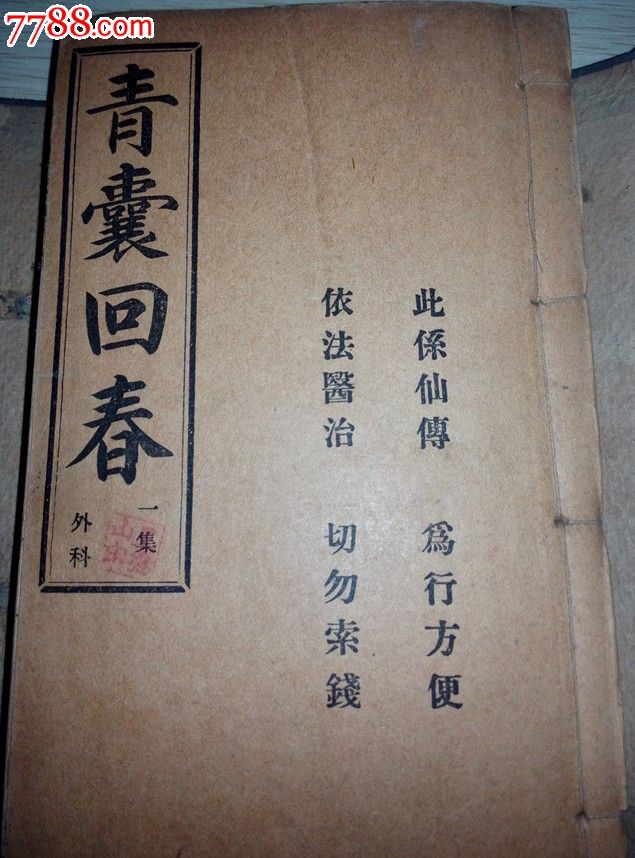 7788.com
此係仙傳 爲行方便
依法醫治 切勿索錢
青囊回春
一集
外科